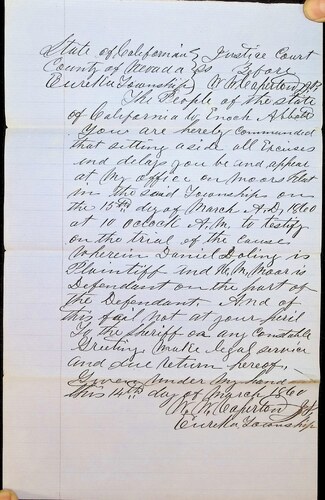 State of California } Justice Court
County of Nevada } ss Before
Eureka Township } W. W. Caperton J.P.
The People of the state
of California to Enoch Abbott
You are hereby Commanded
that setting a side all Excuses
and delays you be and appear
at My office on Moors Flat
in the said Township on
the 15th day of March A.D. 1860
at 10 oclock A.M. to testify
on the trial of the cause
Wherein Daniel Doling is
Plaintiff and H. M. Moor is
Defendant on the part of
the Defendant. And of
this fail not at your peril
To the Sheriff or any Constable
Greeting Make legal service
and due return hereof.
Given under My hand
this 14th day of March 1860
W. W. Caperton J.P.
Eureka Township